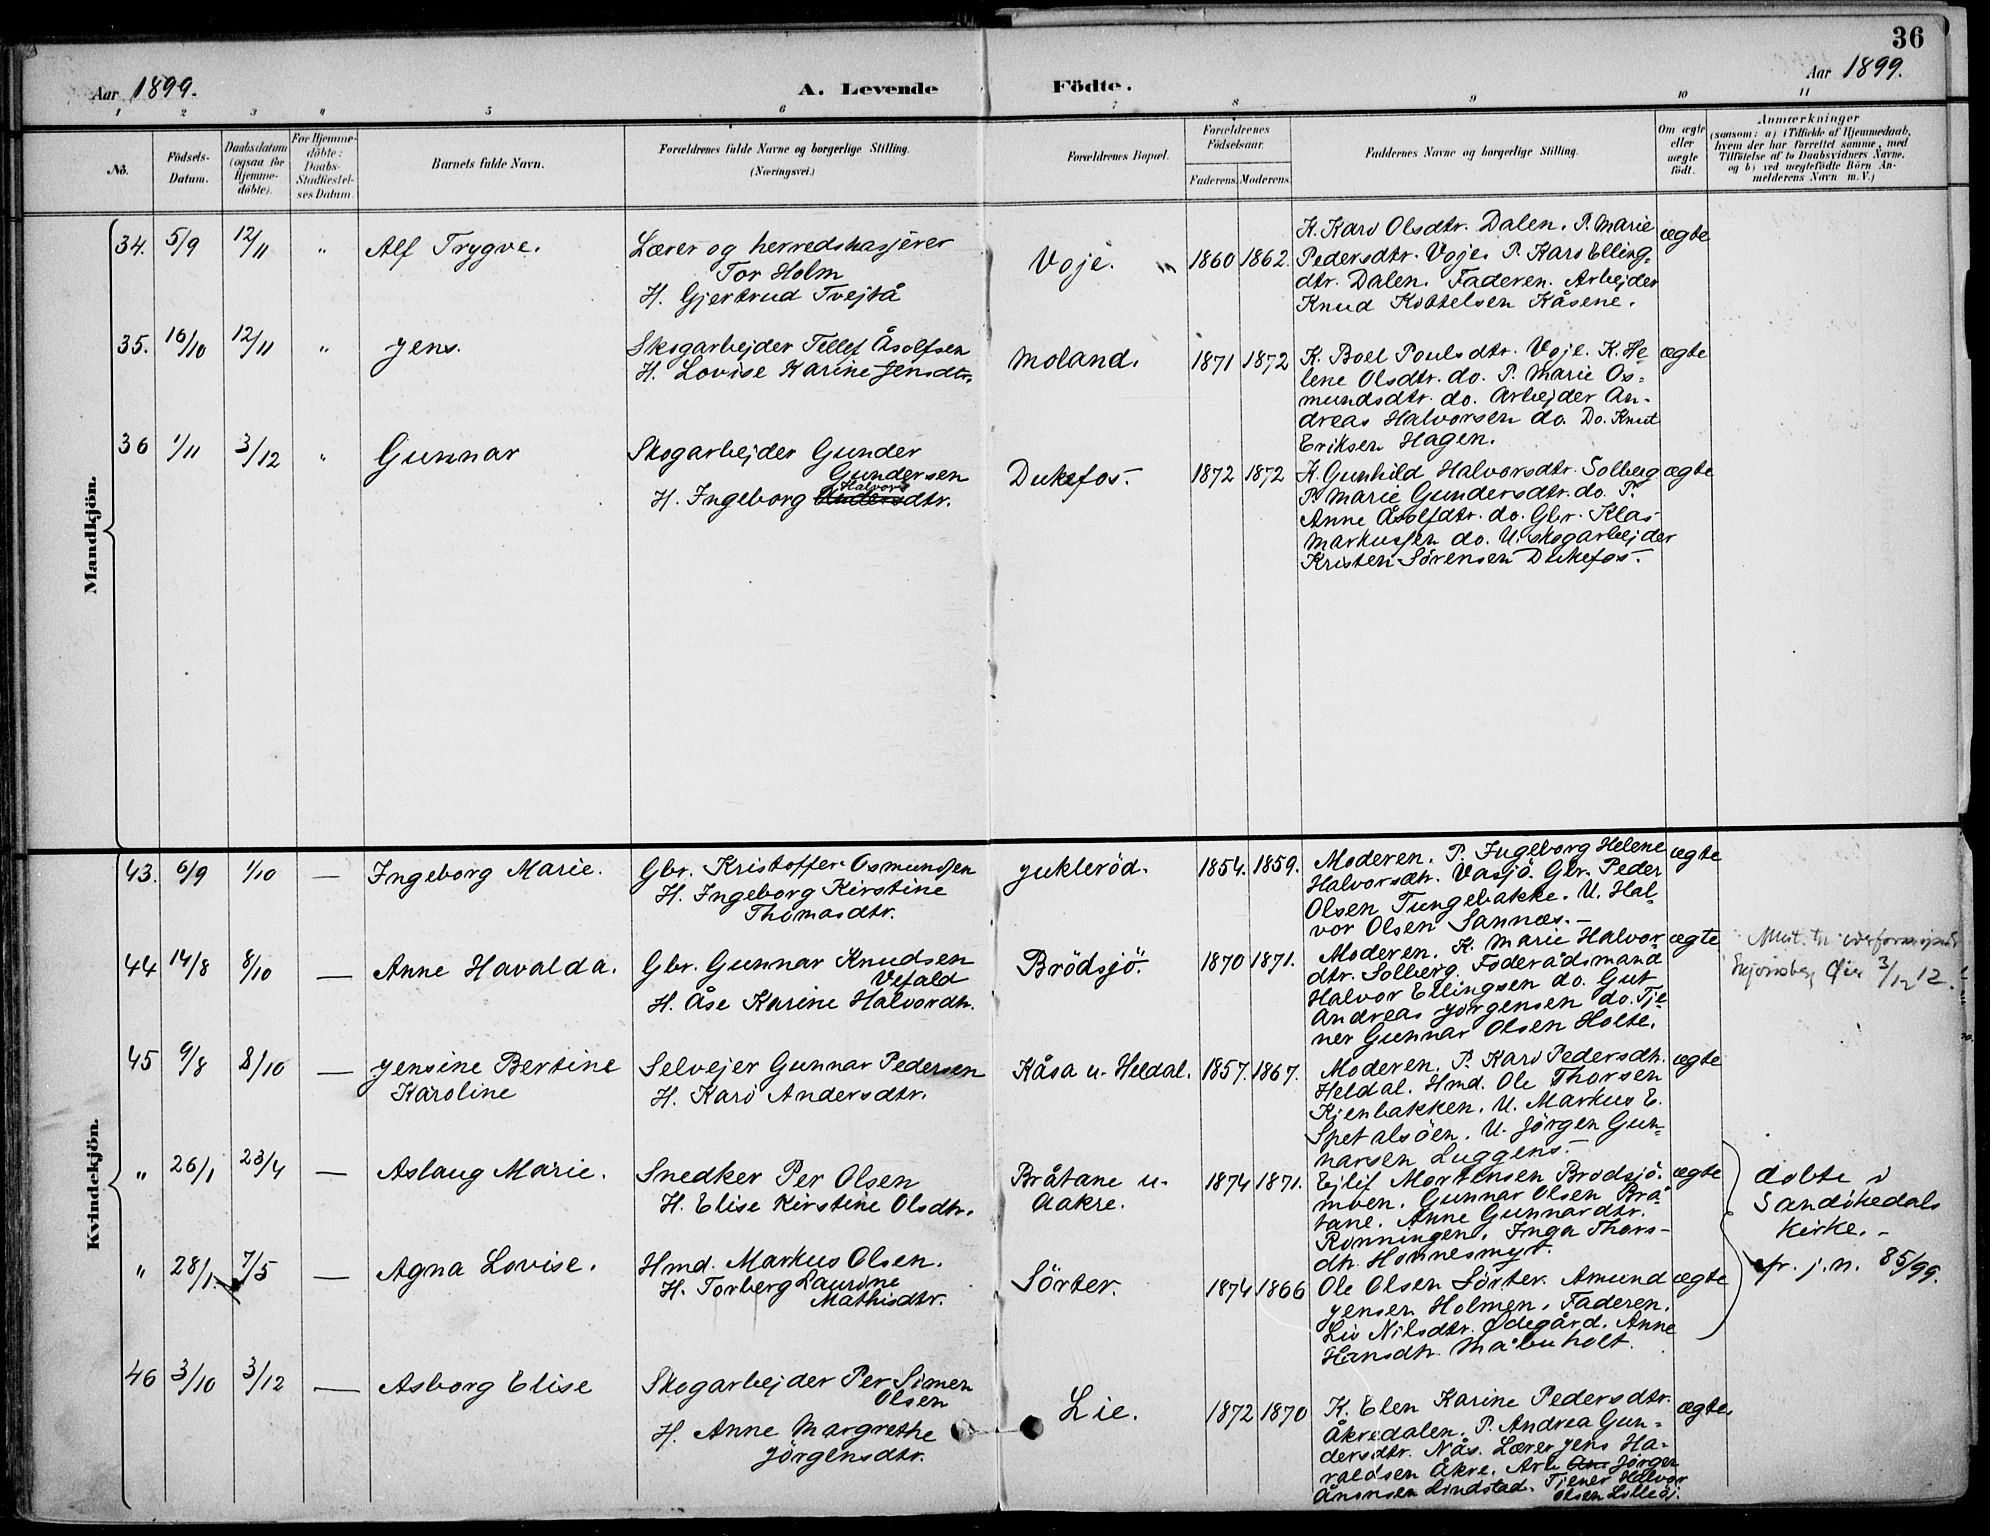 36
Aar 1899.
A. Levende Födte.
Aar 1899.
1 2 3 4 5 6 7 8 9 10 11
No.
Födsels-
Datum.
Daabsdatum
(ogsaa for
Hjemme-
döbte).
For Hjemme-
döbte:
Daabs-
Stadfæstel-
ses Datum.
Barnets fulde Navn.
Forældrenes fulde Navne og borgerlige Stilling.
(Næringsvei.)
Forældrenes Bopæl.
Forældrenes
Födselsaar.
Faderens. Moderens.
Faddernes Navne og borgerlige Stilling.
Om ægte
eller
uægte
födt.
Anmærkninger
(saasom: a) i Tilfælde af Hjemmedaab,
hvem der har forrettet samme, med
Tilföielse af to Daabsvidners Navne,
og b) ved uægtefödte Börn An-
melderens Navn m. V.)
Mandkjön.
34. 5/9 12/11 " Alf Trygve.
Lærer og herredskasjerer
Tor Holm
H. Gjertrud Tvejtå
Voje. 1860 1862.
K. Karo Olsdtr. Dalen. P. Marie
Pedersdtr. Voje. P. Karo Elling-
dtr. Dalen. Faderen. Arbejder
Knud Kittelsen Kåsene.
ægte
35. 16/10 12/11 " Jens.
Skogarbejder Tellef Åsolfsen
H. Lovise Karine Jensdtr.
Moland. 1871 1872
K. Boel Poulsdtr. Voje. K. He-
lene Olsdtr. do. P. Marie Os-
mundsdtr. do. Arbejder An-
dreas Halvorsen do. Do. Knut
Eriksen Hagen.
ægte
36 1/11 3/12 " Gunnar
Skogarbejder Gunder
Gundersen
H. Ingeborg Halvors
Andersdtr.
Dukefos. 1872 1872
K. Gunhild Halvorsdtr. Solberg
P. Marie Gundersdtr. do. P.
Anne Åsolfdtr. do. Gbr. Klas
Markussen do. U. skogarbejder
Kristen Sörensen Dukefos.
ægte
Kvindekjön.
43. 6/9 1/10 — Ingeborg Marie.
Gbr. Kristoffer Osmundsen
H. Ingeborg Kirstine
Thomasdtr.
Jukleröd. 1854. 1859.
Moderen. P. Ingeborg Helene
Halvorsdtr. Vasjö. Gbr. Peder
Olsen Tungebakke. U. Hal-
vor Olsen Sannæs.-
ægte
44 14/8 8/10 — Anne Havalda.
Gbr. Gunnar Knudsen
Vefald
H. Åse Karine Halvordtr.
Brödsjö. 1870 1871.
Moderen. K. Marie Halvor-
dtr. Solberg. Foderådsmand
Halvor Ellingsen do. Gut
Andreas Jörgensen do. Tje-
ner Gunnar Olsen Holte.
ægte
3/12 12.
45 9/8 8/10 — Jensine Bertine
Karoline
Selvejer Gunnar Pedersen
H. Karo Andersdtr.
Kåsa u. Heldal. 1857. 1867.
Moderen. P. Karo Pedersdtr.
Heldal. Hmd. Ole Thorsen
Kjenbakken. U. Markus E.
Spetalsöen. U. Jörgen Gun-
narsen Luggens.-
ægte
" 26/1 23/4 — Aslaug Marie.
Snedker Per Olsen
H. Elise Kirstine Olsdtr.
Bråtane u.
Aakre.
1874 1871.
Ejlif Mortensen Brödsjö-
moen. Gunnar Olsen Brå-
tane. Anne Gunnardtr.
Rönningen. Inga Thors-
dtr. Honnesmyr.
ægte
döbte i
Sandökedals
kirke.-
fr. j. n. 85/99.
" 28/1. 7/5 — Agna Lovise.
Hmd. Markus Olsen.
H. Torberg Laurine
Mathisdtr.
Sörter. 1874 1866
Ole Olsen Sörter. Amund
Jensen Holmen. Faderen.
Liv Nilsdtr. Ødegård. Anne
Hansdtr. Måbuholt.
ægte
46 3/10 3/12 — Asborg Elise
Skogarbejder Per Simen
Olsen
H. Anne Margrethe
Jörgensdtr.
Lie. 1872 1870
K. Elen Karine Pedersdtr.
Åkredalen. P. Andrea Gun-
dersdtr. Nås. Lærer Jens Ha-
raldsen Åkre. Arb. Jörgen
Ånonsen Lindstad. Tjener Halvor
Olsen
ægte.